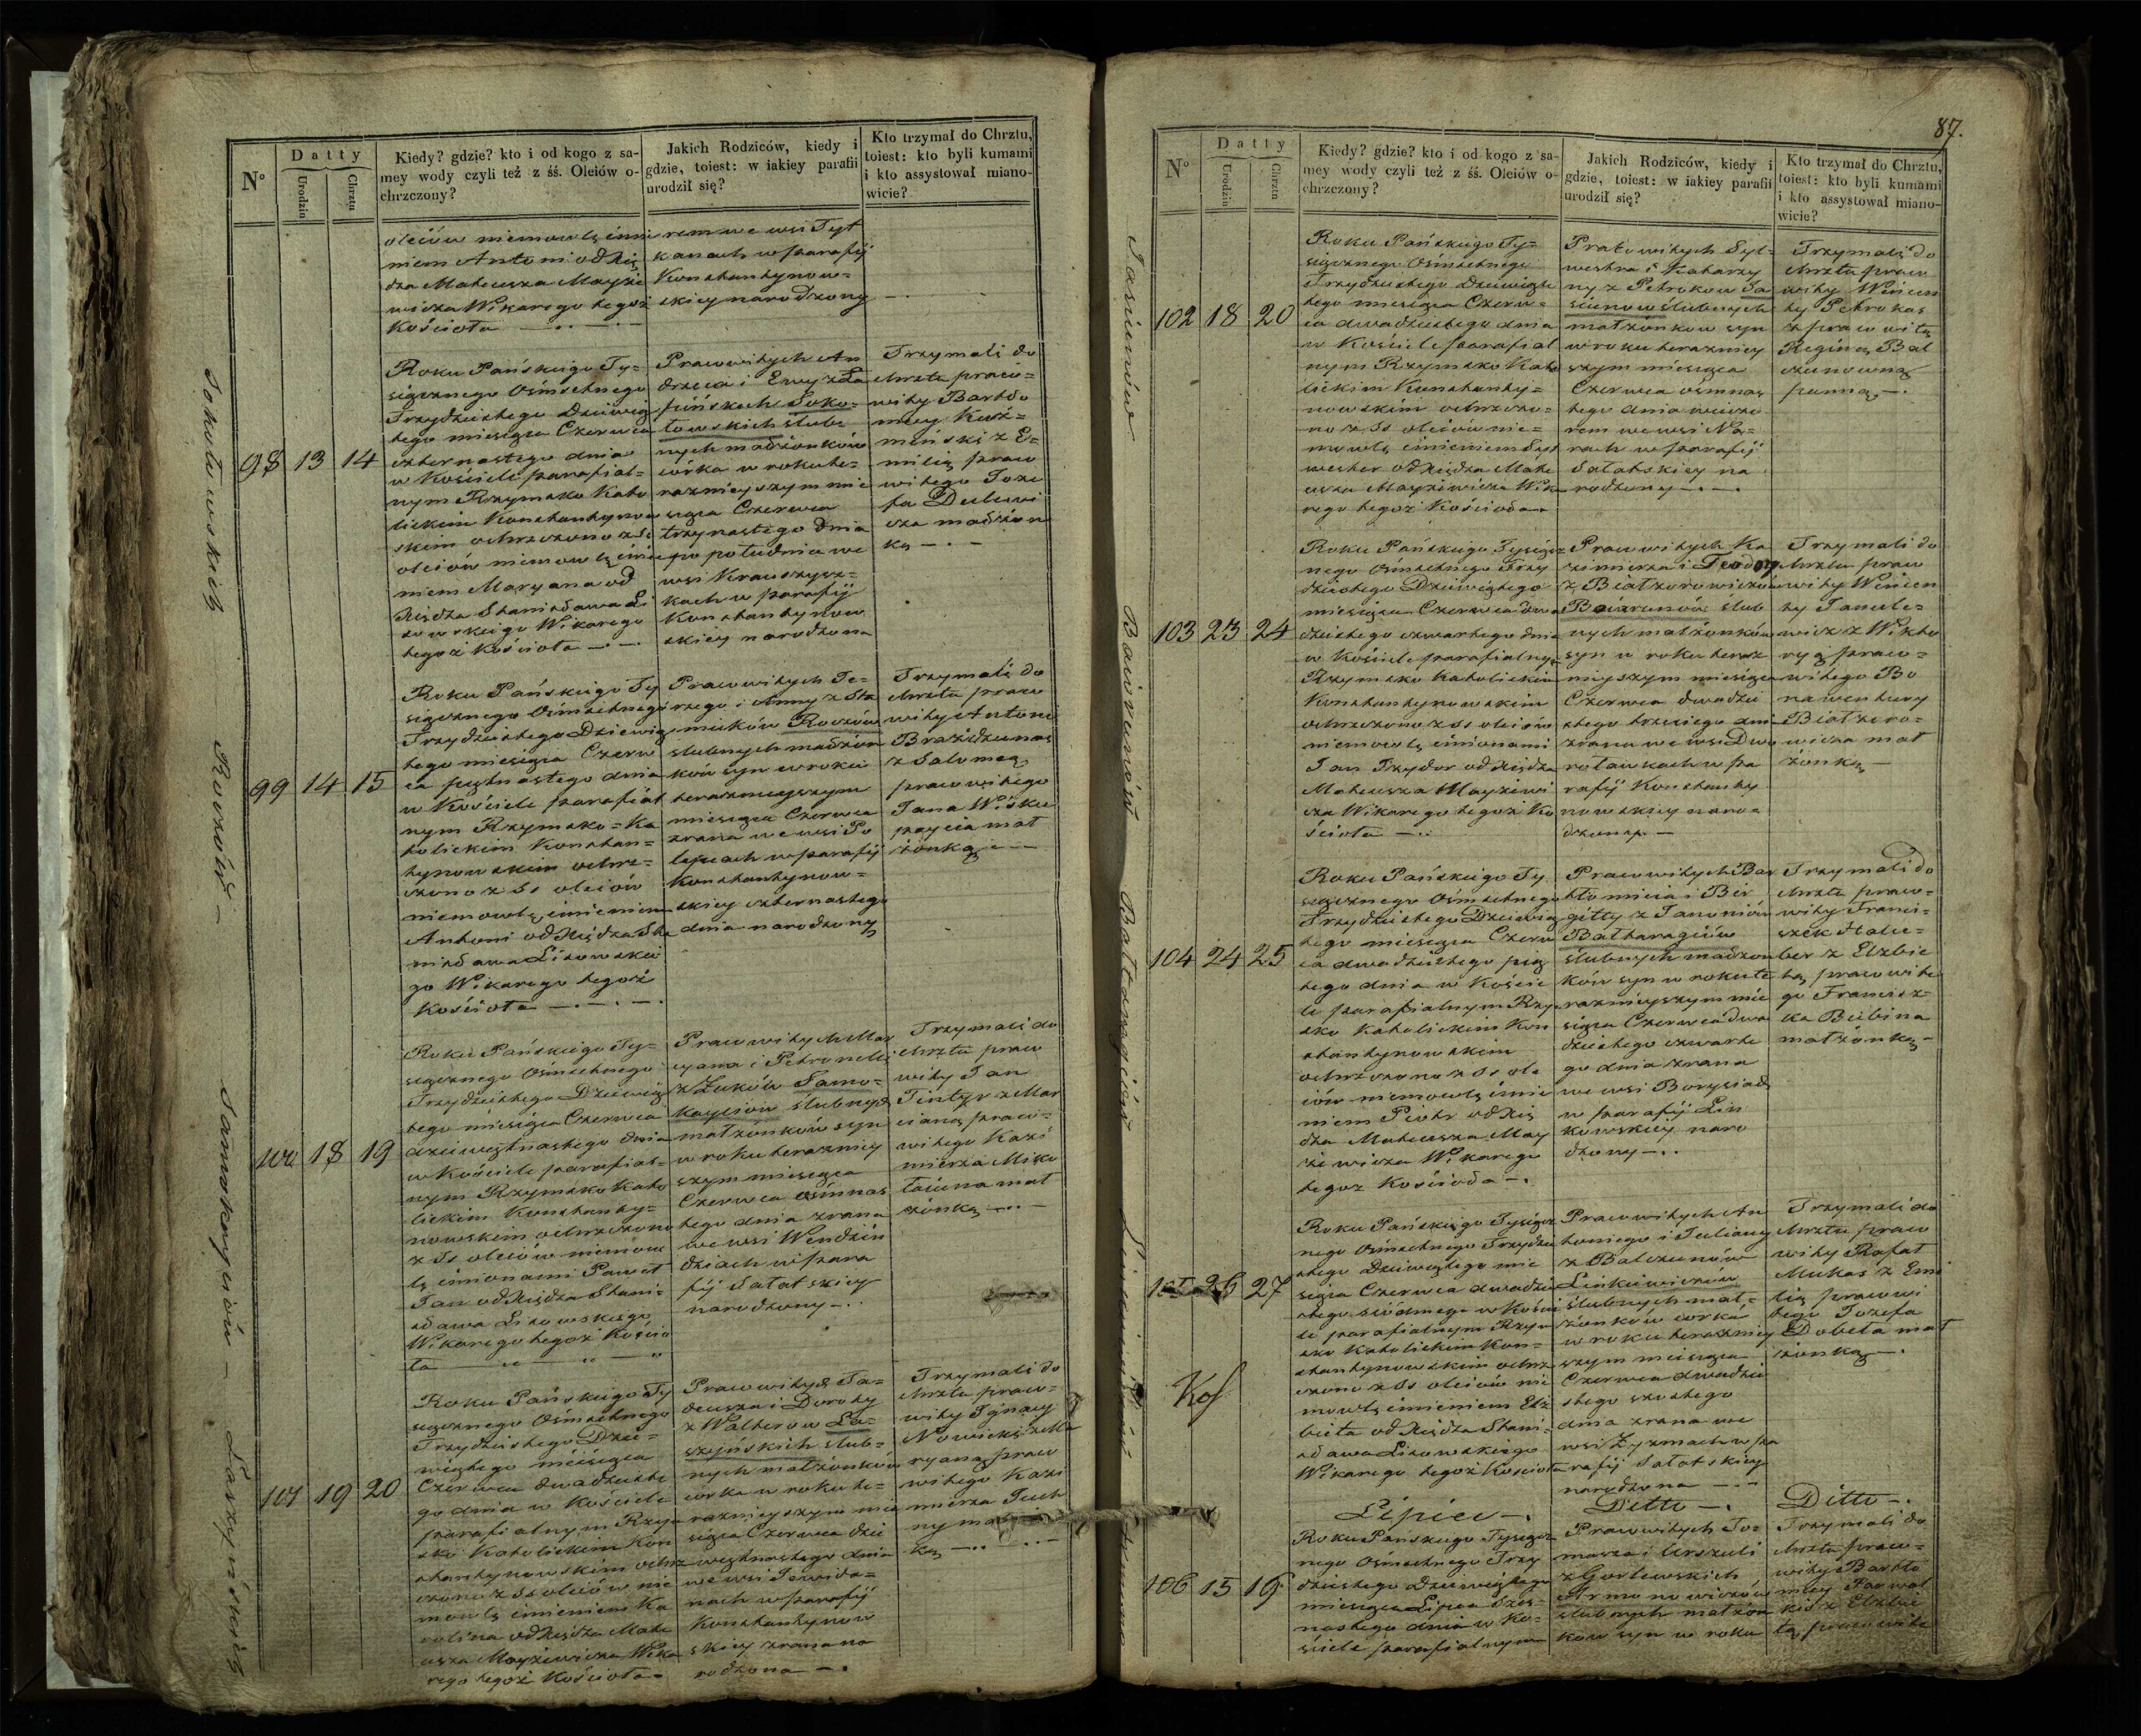 N°
Datty
Urodzin
Chrztu
Kiedy? gdzie? kto i od kogo z sa-
mey wody czyli też z śś. Oleiów o-
chrzczony?
Jakich Rodziców, kiedy i
gdzie, toiest: w iakiey parafii
urodził się?
Kto trzymał do Chrztu,
toiest: kto byli kumami
i kto assystował miano-
wicie?
oleiów niemowlę imie
niem Antoni od Xię
dza Mateusza Mayze
wicza Wikarego tegoż
Kościoła
rem we wsi Tyt
kanach w parafij
Konstantynow=
skiey narodzony
Sokołowskich
98 13 14
Roku Pańskiego Ty=
siącznego Ośmsetnego
Trzydziestego Dziewią
tego miesiąca Czerwca
czternastego dnia
w Kościele parafial=
nym Rzymsko Kato
lickim Konstantynow
skim ochrzczono z SS
oleiów niemowlę imie
niem Maryana od
Xiędza Stanisława Li
sowskiego Wikarego
tegoż Kościoła
Prawowitych An
drzeia i Ewy z Ła
pińskich Soko=
łowskich ślub
nych małżonków
córka w roku te=
raznieyszym mie
siąca Czerwca
trzynastego dnia
po południu we
wsi Krauszysz=
kach w parafij
Konstantynow
skiey narodzona
Trzymali do
chrztu praw=
wity Bartło
miey Kuź=
miński z E=
milią praw
witego Joze
fa Dulewi
cza małżon
ką
Roczów
99 14 15
Roku Pańskiego Ty
siącznego Ośmsetnego
Trzydziestego Dziewią
tego miesiąca Czerw
ca piętnastego dnia
w Kościele parafial
nym Rzymsko=Ka
tolickim Konstan=
tynowskim ochrz=
czono z SS oleiów
niemowlę imieniem
Antoni od Xiędza Sta
nisława Lisowskie
go Wikarego tegoż
Kościoła
Prawowitych Je=
rzego i Anny z
Roczów
ślubnych małżon
ków syn w roku
teraznieyszym
miesiąca Czerwca
zrana we wsi Po
łepiach w parafij
Konstantynow=
skiey czternastego
dnia narodzony
Trzymali do
chrztu praw
wity Antoni
Braźdzunas
z Salomeą
prawowitego
Jana Wisku
paycia mał
żonką
Samokayciów
100 18 19
Roku Pańskiego Ty=
siącznego Ośmsetnego
Trzydziestego Dziewią
tego miesiąca Czerwca
dziewiętnastego dnia
w Kościele parafial=
nym Rzymsko Kato
lickim Konstanty=
nowskim ochrzczono
z SS oleiów niemow
lę imionami Paweł
Jan od Xiędza Stani=
sława Lisowskiego
Wikarego tegoż Kościo
ła
Prawowitych Mar
cyana i Petroneli
z Żuków Samo=
kayciow ślubnych
małżonków syn
w roku terazniey
szym miesiąca
Czerwca ośmnas
tego dnia zrana
we wsi Wendziń
dziach w para
fij Sałatskiey
narodzony
Trzymali do
chrztu praw
wity Jan
Tintyr z Mar
cianą praw=
witego Kazi
mierza Miko
łaiuna mał
żonką
Łaszyńskich
101 19 20
Roku Pańskiego Ty
siącznego Ośmsetnego
Trzydziestego Dzie=
wiątego miesiąca
Czerwca dwudzieste
go dnia w Kościele
parafialnym Rzym
sko Katolickim Kon
stantynowskim ochrz
czono z SS oleiów nie
mowlę imieniem Ka
rolina od Xiędza Mate
usza Mayzewicza Wika
rego tegoż Kościoła
Prawowitych Ta=
deusza i Doroty
z Walterow Ła=
szyńskich ślub=
nych małżonków
córka w roku te=
raznieyszym mie
siąca Czerwca dzie
więtnastego dnia
we wsi Jewida=
nach w parafij
Konstantynow
skiey zrana na
rodzona
Trzymali do
chrztu praw=
wity Ignacy
Nowicki z Ma
ryaną praw
witego Kazi
mierza Juch
ny mał
ką
87.
N°
Datty
Urodzin
Chrztu
Kiedy? gdzie? kto i od kogo z sa-
mey wody czyli też z śś. Oleiów o-
chrzczony?
Jakich Rodziców, kiedy i
gdzie, toiest: w iakiey parafii
urodził się?
Kto trzymał do Chrztu,
toiest: kto byli kumami
i kto assystował miano-
wicie?
Jasiunów
102 18 20
Roku Pańskiego Ty=
siącznego Ośmsetnego
Trzydziestego Dziewią
tego miesiąca Czerw=
ca dwudziestego dnia
w Kościele parafial
nym Rzymsko Kato
lickim Konstanty=
nowskim ochrzczo=
no z SS oleiów nie=
mowlę imieniem Syl
wester od Xiędza Mate
usza Mayzewicza Wika
rego tegoż Kościoła
Prawowitych Syl=
westra i Katarzy
ny z Petrokow Ja
siunow ślubnych
małżonkow syn
w roku terazniey
szym miesiąca
Czerwca ośmnas
tego dnia wieczo
rem we wsi Na=
rach w parafij
Sałatskiey na
rodzony
Trzymali do
chrztu praw
wity Wincen
ty Petrokas
z prawowitą
Reginą Bal
czunowną
panną
Bairunów
103 23 24
Roku Pańskiego Tysiącz
nego Ośmsetnego Trzy
dziestego Dziewiątego
miesiąca Czerwca dwu
dziestego czwartego dnia
w Kościele parafialnym
Rzymsko Katolickim
Konstantynowskim
ochrzczono z SS oleiów
niemowlę imionami
Jan Izydor od Xiędza
Mateusza Mayzewi
cza Wikarego tegoż Ko
ścioła
Prawowitych Ka
zimierza i Teodory
z Białzorowiczów
Bairunów ślub
nych małżonków
syn w roku teraz
nieyszym miesiąca
Czerwca dwudzie
stego trzeciego dnia
zrana we wsi Dwo
rolawkach w pa
rafij Konstanty
nowskiey naro=
dzony
Trzymali do
chrztu praw
wity Wincen
ty Janule=
wicz z Wikto
ryą praw=
witego Bo
nawentury
Białzoro=
wicza mał
żonką
Bałtaragiów
104 24 25
Roku Pańskiego Ty
siącznego Ośmsetnego
Trzydziestego Dziewią
tego miesiąca Czerw
ca dwudziestego pią
tego dnia w Koście
le parafialnym Rzym
sko Katolickim Kon
stantynowskim
ochrzczono z SS ole
iów niemowlę imie
niem Piotr od Xię
dza Mateusza May
zewicza Wikarego
tegoż Kościoła
Prawowitych Bar
tłomieia i Bir
gitty z Janoniów
Bałtaragiów
ślubnych małżon
ków syn w roku te
raznieyszym mie
siąca Czerwca dwu
dziestego czwarte
go dnia zrana
we wsi Borysiach
w parafij Lin
kowskiey naro
dzony
Trzymali do
chrztu praw=
wity Franci=
szek Hale=
ber z Elzbie
tą prawowite
go Francisz=
ka Bubina
małżonką
Linkiewiczów
105 26 27
Kof
Roku Pańskiego Tysiącz
nego Ośmsetnego Trzydzie
stego Dziewiątego mie
siąca Czerwca dwudzie
stego siódmego w Koście
le parafialnym Rzym
sko Katolickim Kon=
stantynowskim ochrz
czono z SS oleiów nie
mowlę imieniem Elz
bieta od Xiędza Stani=
sława Lisowskiego
Wikarego tegoż Kościoła
Prawowitych An
toniego i Julianny
z Balczunów
Linkiewiczow
ślubnych mał=
żonków córka
w roku teraźniey
szym miesiąca
Czerwca dwudzie
stego szóstego
dnia zrana we
wsi Zyzmach w pa
rafij Sałatskiey
narodzona
Trzymali do
chrztu praw
wity Rafał
Mukas z Emi
lią prawowi
tego Jozefa
Dobeta mał
żonką
Lipiec
Ditto
Ditto
106 15 16
Roku Pańskiego Tysiącz
nego Ośmsetnego Trzy
dziestego Dziewiątego
miesiąca Lipca szes=
nastego dnia w Ko=
ściele parafialnym
Prawowitych To=
masza i Urszuli
z Gorlewskich
Armonowiczów
ślubnych małżon
kow syn w roku
Trzymali do
chrztu praw=
wity Bartło
miey
kis z Elzbie
tą prawowite